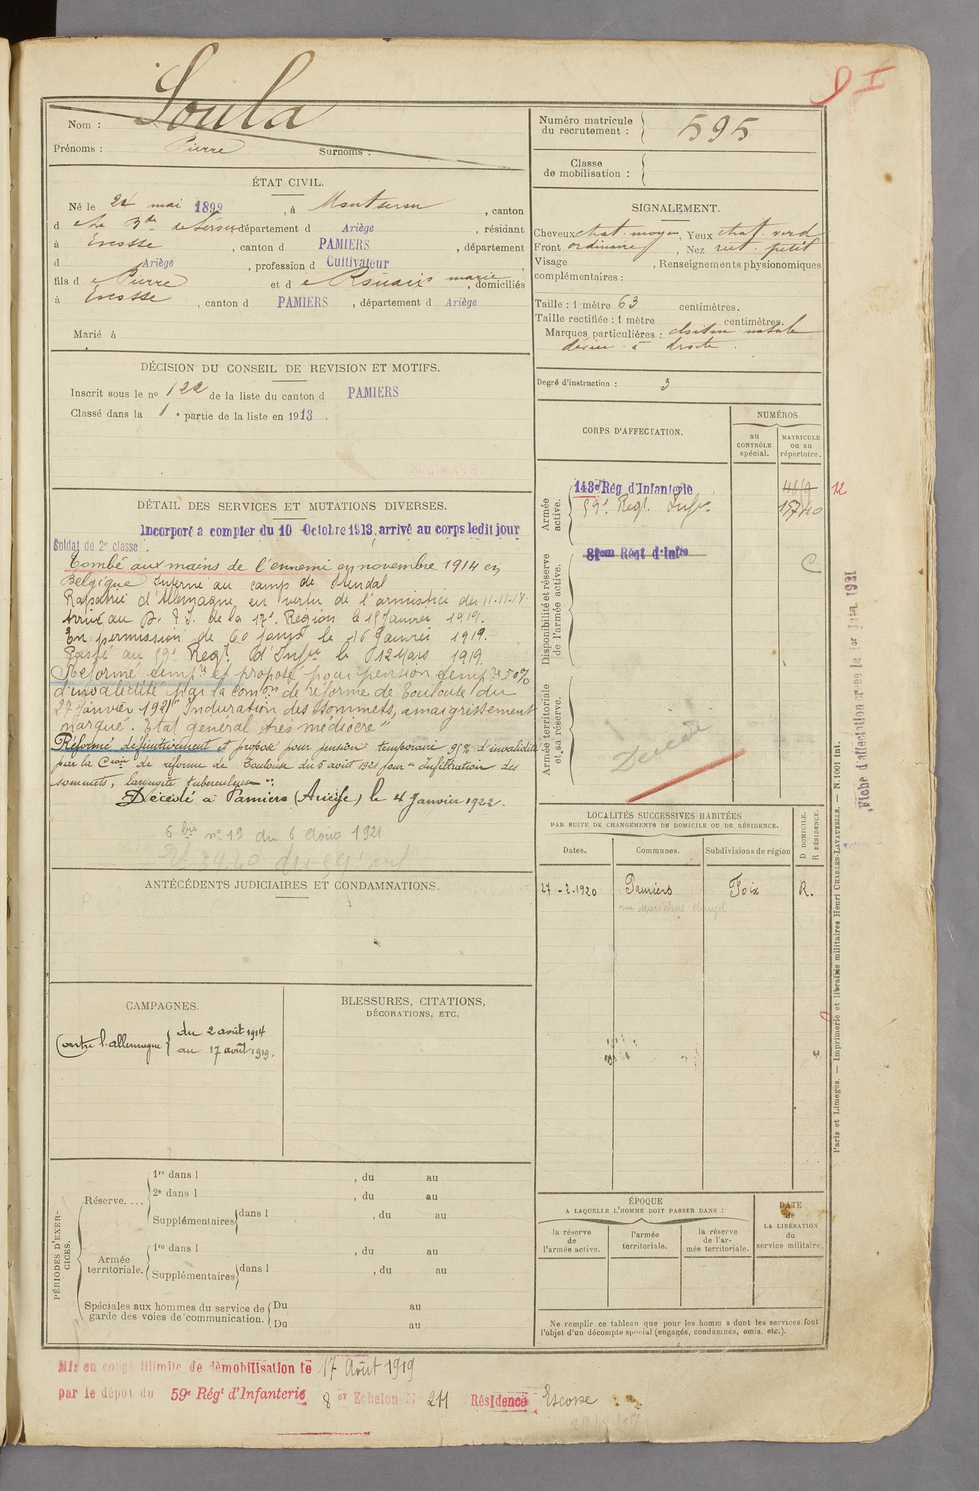 D I
Nom : Soula
Prénoms : Pierre Surnoms :
ÉTAT CIVIL.
Né le 24 mai 1892, à , canton
d , département d Ariège, résidant
à Escosse, canton d PAMIERS, département
d Ariège, profession d Cultivateur,
fils de Pierre et de marie, domiciliés
à Escosse, canton d PAMIERS, département d Ariège
Marié à
DÉCISION DU CONSEIL DE REVISION ET MOTIFS.
Inscrit sous le no 122 de la liste du canton d PAMIERS
Classé dans la 1e partie de la liste en 1913.
DÉTAIL DES SERVICES ET MUTATIONS DIVERSES.
Incorporé à compter du 10 Octobre 1913, arrivé au corps ledit jour
Soldat de 2e classe.
Tombé aux mains de l'ennemi en novembre 1914 en
Belgique Interné au camp de
Rapatrié d'Allemagne en vertu de l'armistice du 11-11-18
Arrivé au de la 17e Région le 15 Janvier 1919.
En permission de 60 jours le 16 Janvier 1919.
Passé au 59e Régt d'Infie le 12 Mars 1919.
Réformé tempre et proposé pour pension tempre 50%
d'invalidité par la comon de réforme de Toulouse du
27 Janvier 1921 "Induration des sommets, amaigrissement
marqué. Etat général très médiocre"
Réformé définitivement et proposé pour pension temporaire 95% d'invalidité
par la Con de réforme de Toulouse du 5 août 1921 pour "Infiltration des
sommets, laryngite tuberculeuse".
Décédé à Pamiers (Ariège) le 4 Janvier 1922.
6 bis no 19 du 6 Août 1921
ANTÉCÉDENTS JUDICIAIRES ET CONDAMNATIONS.
CAMPAGNES.
Contre l'allemagne { du 2 août 1914
au 17 août 1919.
BLESSURES, CITATIONS,
DÉCORATIONS, ETC.
PÉRIODES D'EXERCICES.
Réserve.... 1re dans l , du au
2e dans l , du au
Supplémentaires dans l , du au
Armée territoriale. 1re dans l , du au
Supplémentaires dans l , du au
Spéciales aux hommes du service de Du au
garde des voies de communication. Du au
Numéro matricule
du recrutement : 595
Classe
de mobilisation :
SIGNALEMENT.
Cheveux chat. moyen, Yeux chat. verd
Front ordinaire, Nez rect. petit
Visage , Renseignements physionomiques
complémentaires :
Taille : 1 mètre 63 centimètres.
Taille rectifiée : 1 mètre centimètres.
Marques particulières : cloison nasale
déviée à droite.
Degré d'instruction : 3
CORPS D'AFFECTATION.
NUMÉROS
au
CONTRÔLE
spécial.
MATRICULE
ou au
répertoire.
Armée
active.
143e Rég d'Infanterie
59e Régt Infie
12
Disponibilité et réserve
de l'armée active.
Régt d'Infie
C
Armée territoriale
et sa réserve.
Décédé
LOCALITÉS SUCCESSIVES HABITÉES
PAR SUITE DE CHANGEMENTS DE DOMICILE OU DE RÉSIDENCE.
Dates. Communes. Subdivisions de région D DOMICILE. R RÉSIDENCE.
27-2-1920 Pamiers Foix R.
ÉPOQUE
A LAQUELLE L'HOMME DOIT PASSER DANS :
la réserve
de
l'armée active.
l'armée
territoriale.
la réserve
de l'ar-
mée territoriale.
DATE
de
LA LIBÉRATION
du
service militaire.
Ne remplir ce tableau que pour les hommes dont les services font
l'objet d'un décompte spécial (engagés, condamnés, omis, etc.).
Paris et Limoges. — Imprimerie et librairie militaires Henri CHARLES-LAVAUZELLE. — N 1001 int.
Fiche d'affectation créée le 1er Juin 1921
Mis en congé illimité de démobilisation le 17 Août 1919
par le dépôt du 59e Régt d'Infanterie 8 Echelon No 211 Résidence Escosse